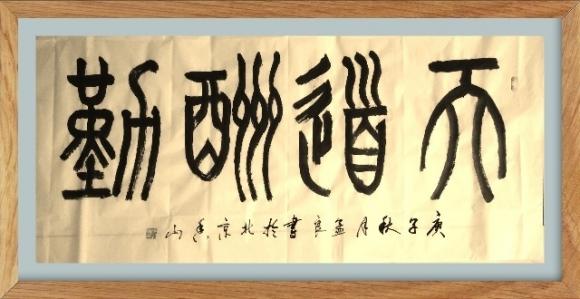 天道酬勤
庚子秋月孟良書於北京香山